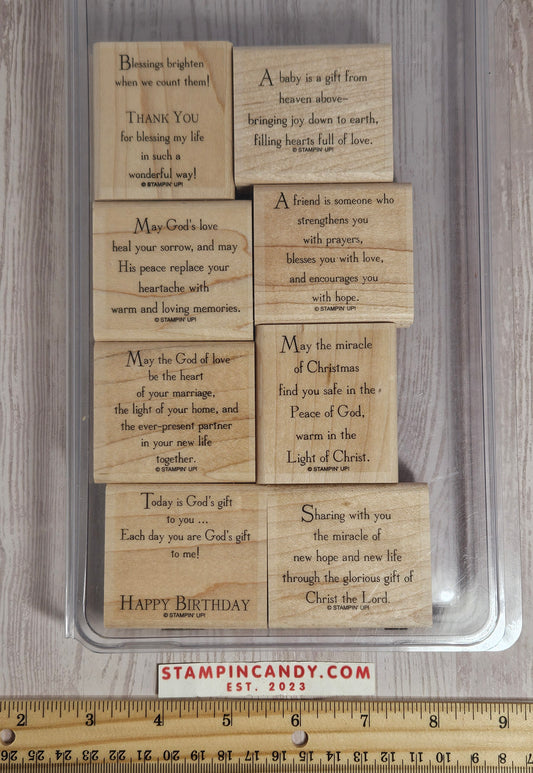 Blessings brighten
when we count them!
THANK YOU
for blessing my life
in such a
wonderful way!
© STAMPIN' UP!
A baby is a gift from
heaven above–
bringing joy down to earth,
filling hearts full of love.
© STAMPIN' UP!
May God's love
heal your sorrow, and may
His peace replace your
heartache with
warm and loving memories.
© STAMPIN' UP!
A friend is someone who
strengthens you
with prayers,
blesses you with love,
and encourages you
with hope.
© STAMPIN' UP!
May the God of love
be the heart
of your marriage,
the light of your home, and
the ever-present partner
in your new life
together.
© STAMPIN' UP!
May the miracle
of Christmas
find you safe in the
Peace of God,
warm in the
Light of Christ.
© STAMPIN' UP!
Today is God's gift
to you ...
Each day you are God's gift
to me!
HAPPY BIRTHDAY
© STAMPIN' UP!
Sharing with you
the miracle of
new hope and new life
through the glorious gift of
Christ the Lord.
© STAMPIN' UP!
STAMPINCANDY.COM
EST. 2023
2 3 4 5 6 7 8 9
26 25 24 23 22 21 20 19 18 17 16 15 14 13 12 11 10 9 8 7